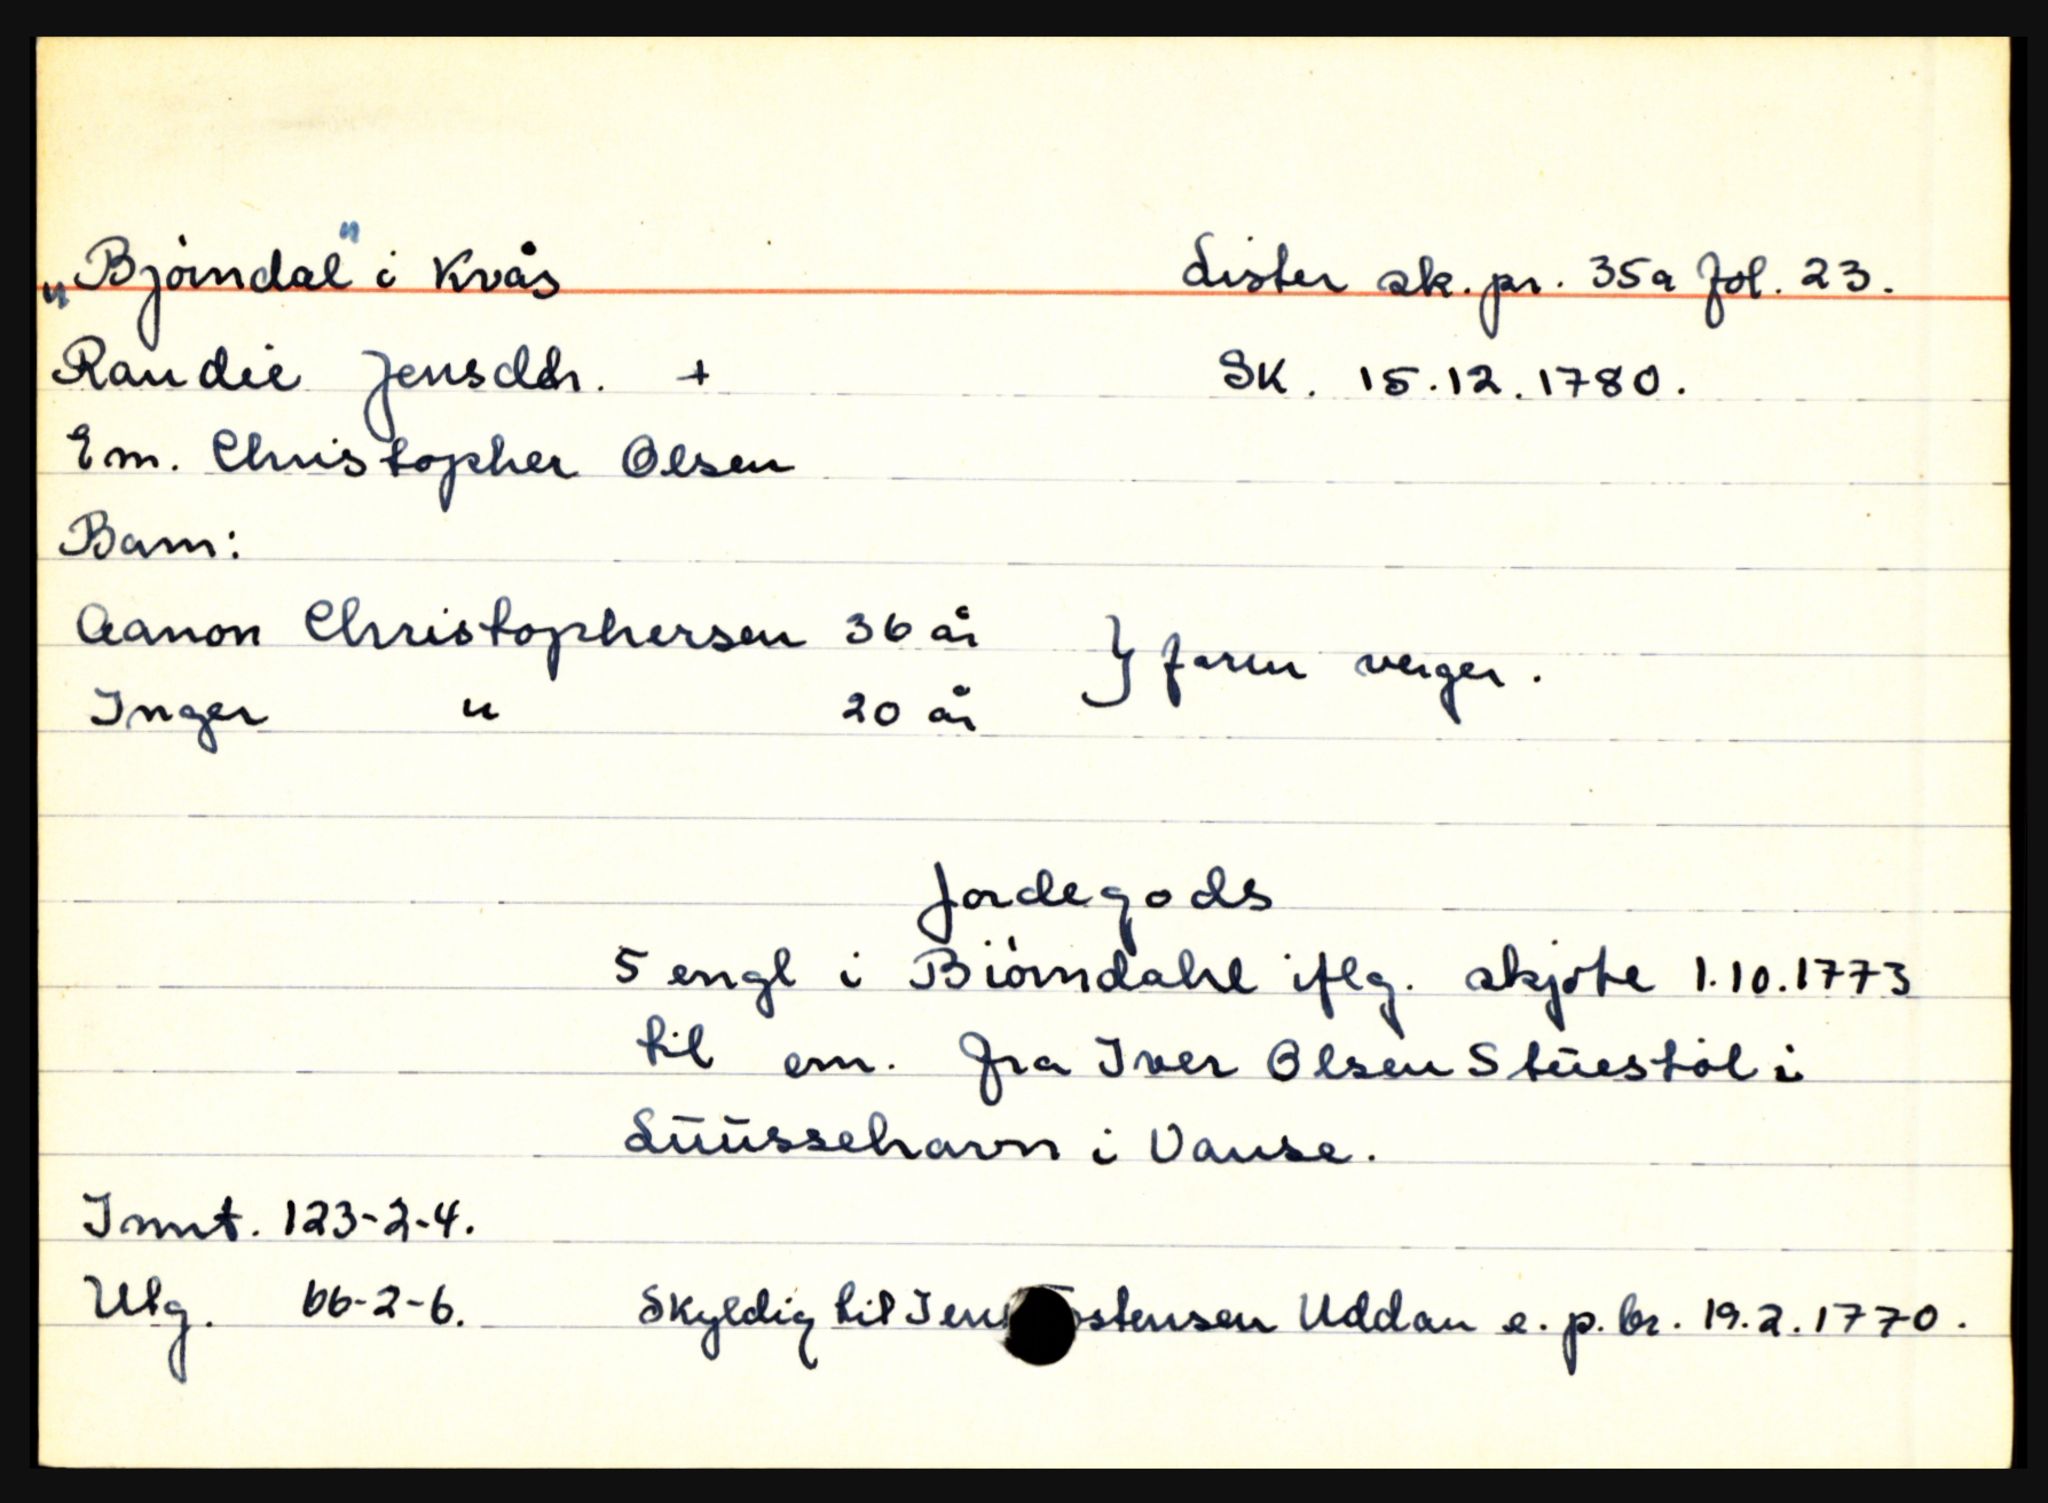 "Bjørndal" i Kvås Lister sk. pr. 35a fol. 23.
Randie Jensdtr. + SK. 15.12.1780.
Em. Christopher Olsen
Barn:
Aanon Christophersen 36 år } faren verger.
Inger " 20 år
Jordegods
5 engl i Biørndahl iflg. skjøte 1.10.1773
til em. fra Iver Olsen Stuestøl i
Luussehavn i Vanse.
Innt. 123-2-4.
Utg. 66-2-6. Skyldig til Uddan e. p. br. 19.2.1770.